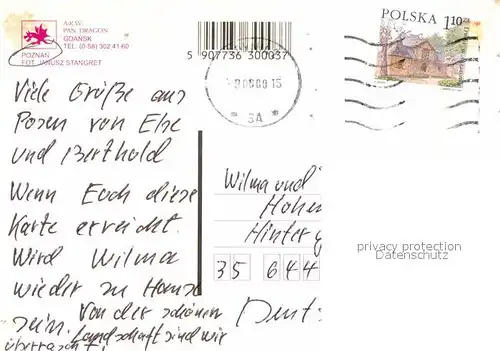 A.R.W.
PAN DRAGON
GDAŃSK
TEL. (0-58) 302 41 60
POZNAŃ
FOT. JANUSZ STANGRET
5 907736 300037
POLSKA 1,10 ZŁ
15
6A
Viele Grüße aus
Posen von Else
und Berthold
Wenn Euch diese
Karte erreicht.
Wird Wilma
wieder zu Hause
sein. Von der schönen
Landschaft sind wir
überrascht.
Wilma und
Hohen
Hinterg
35 644
Deuts
privacy protection
Datenschutz